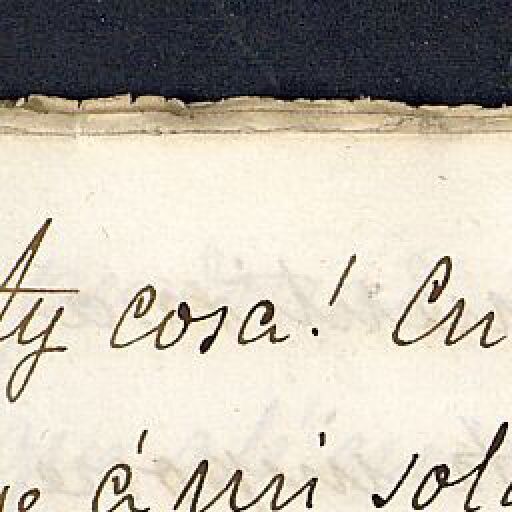 ty cosa! Cu
á mi sol